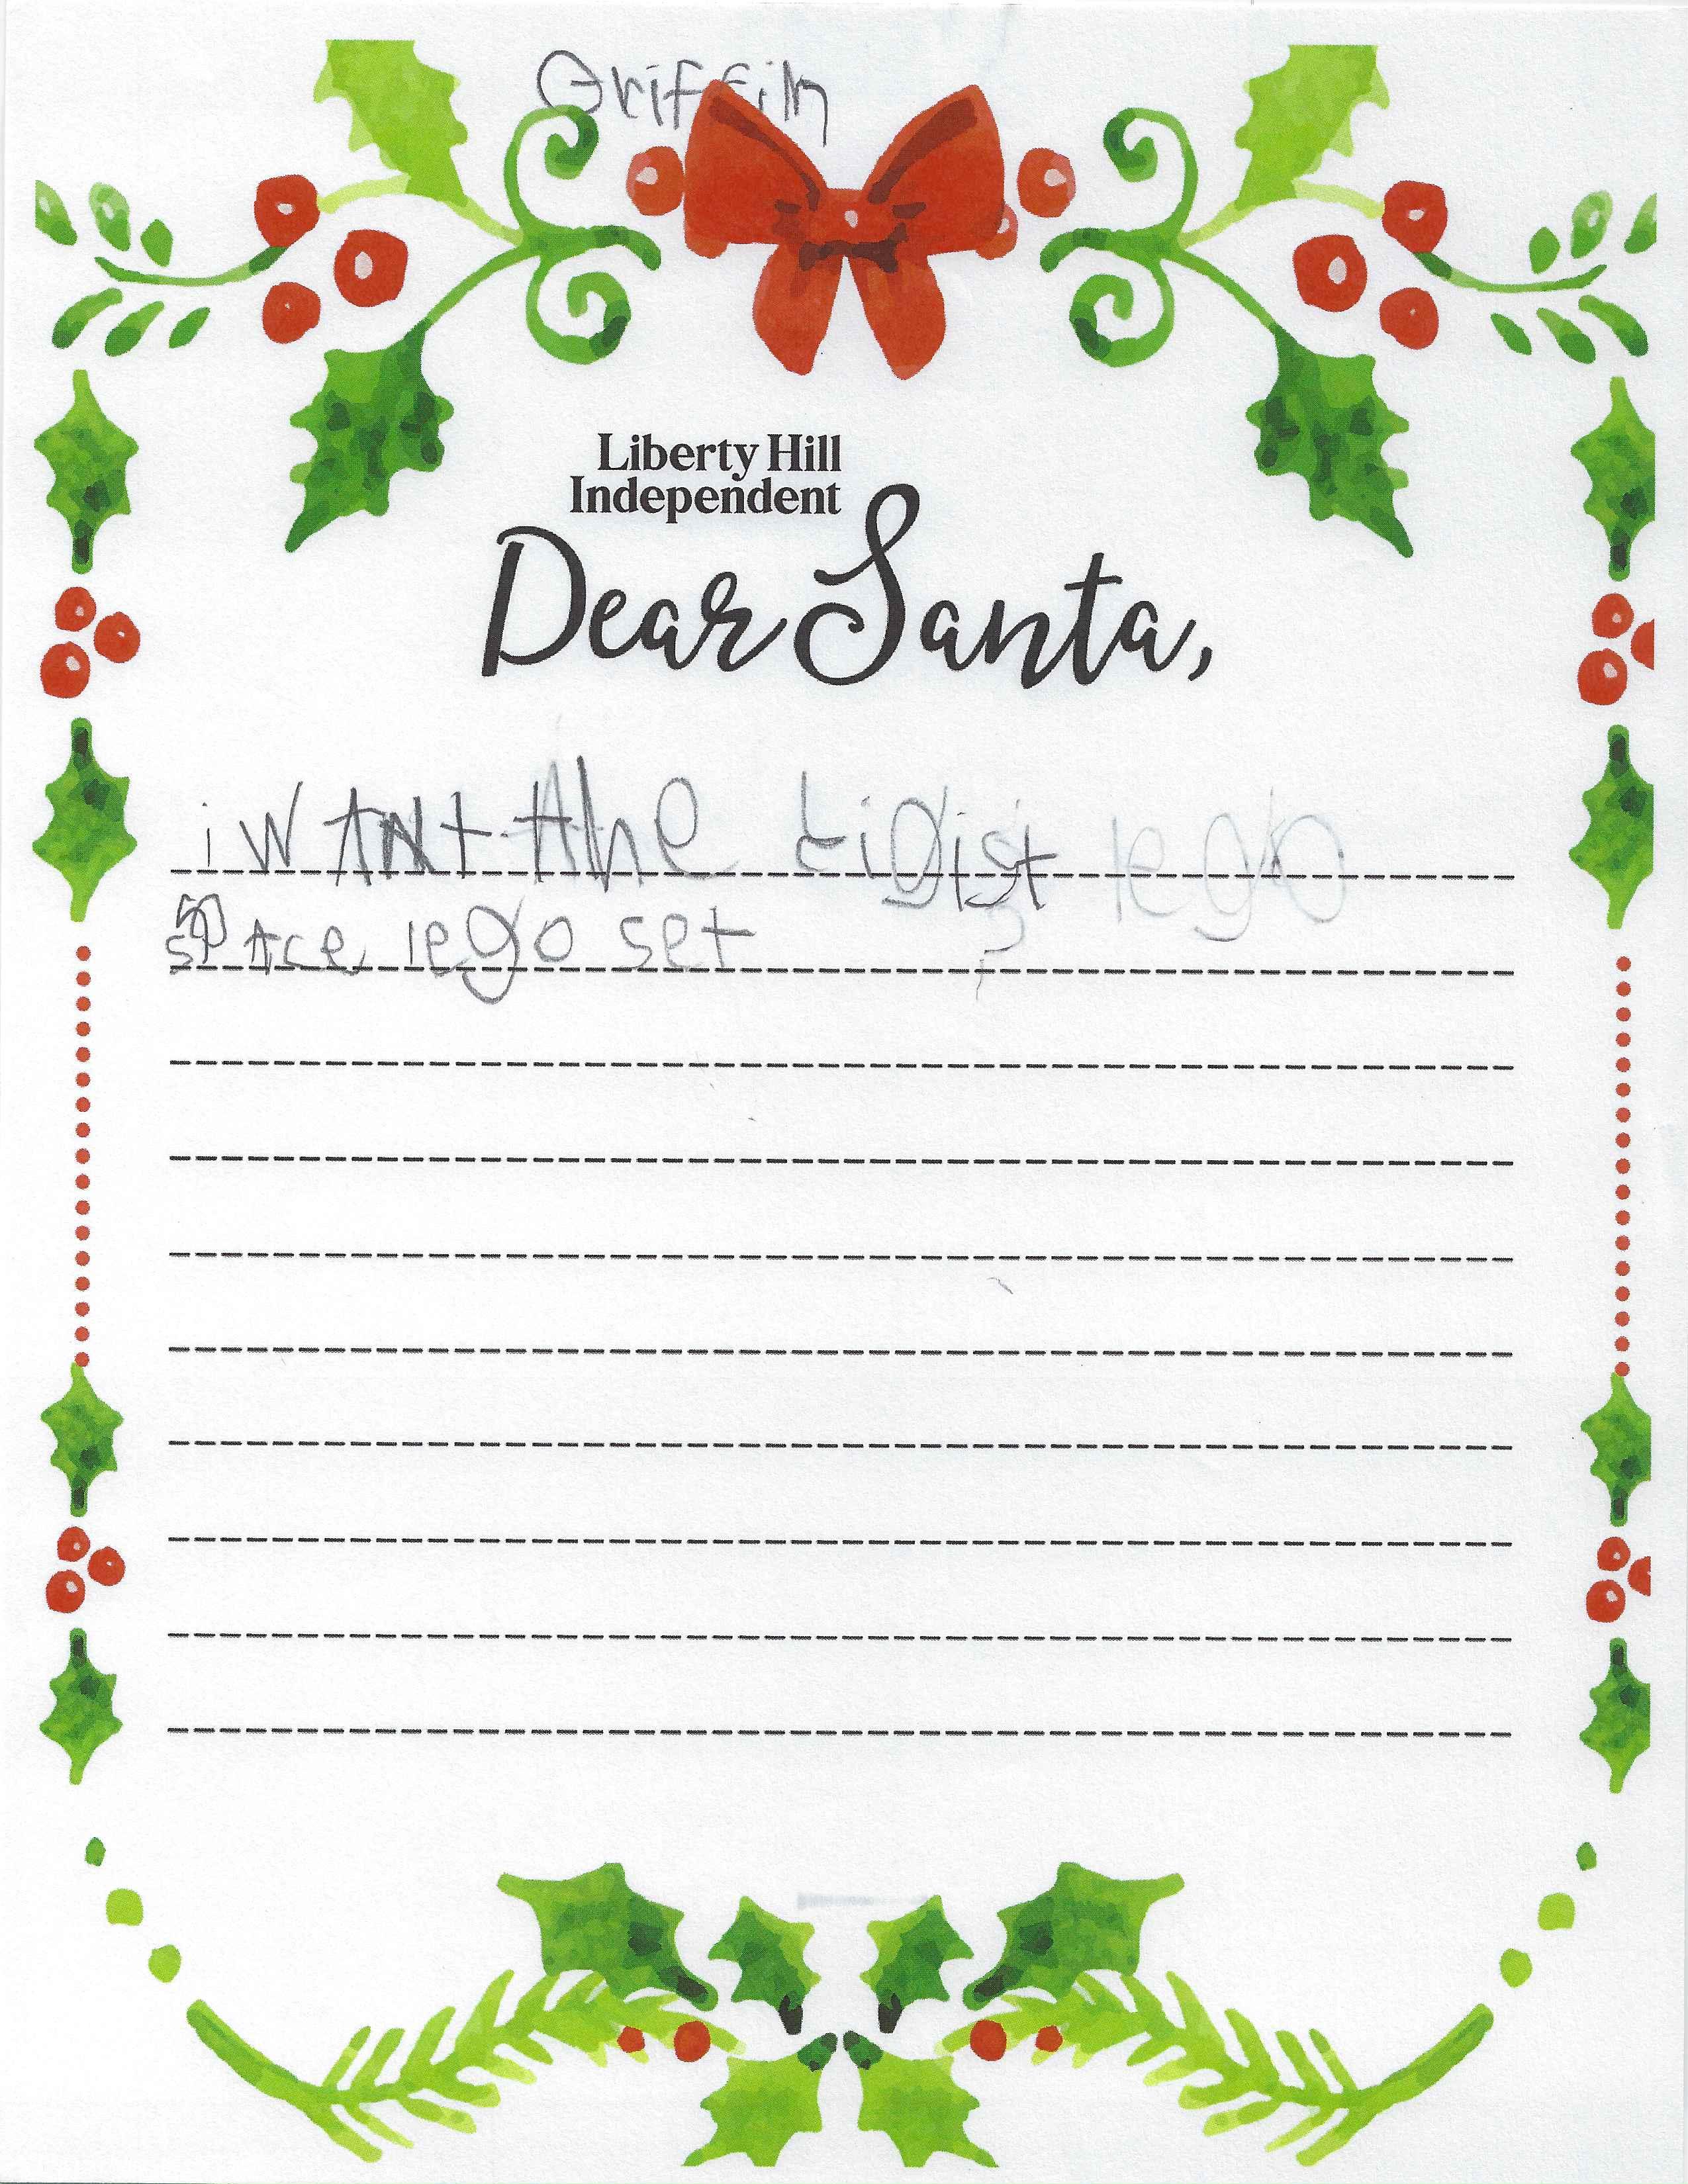 Griffin
Liberty Hill
Independent
Dear Santa,
i wAnt the tigist lego
spAce lego set